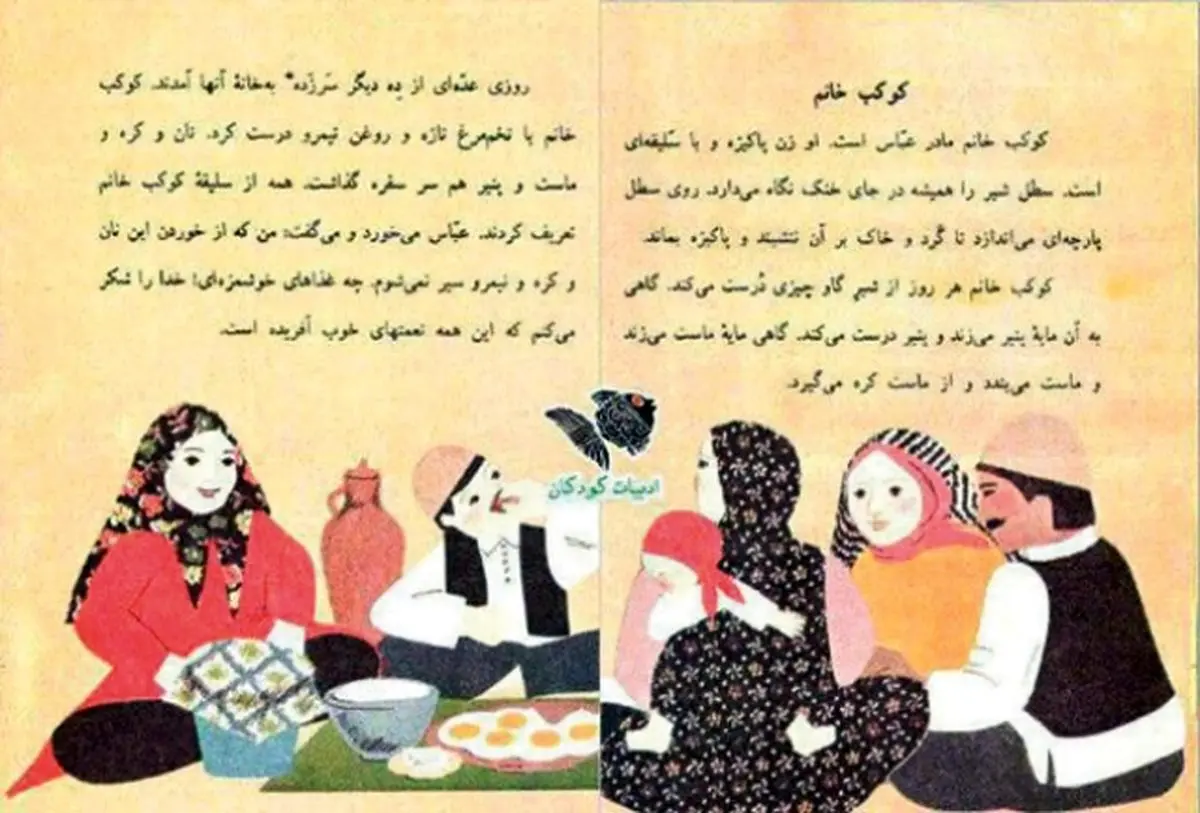 کوکب خانم
کوکب خانم مادر عبّاس است. او زن پاکیزه و با سَلیقه‌ای
است. سطل شیر را همیشه در جای خنک نگاه می‌دارد. روی سطل
پارچه‌ای می‌اندازد تا گَرد و خاک بر آن ننشیند و پاکیزه بماند.
کوکب خانم هر روز از شیرِ گاو چیزی دُرست می‌کند. گاهی
به آن مایهٔ پنیر می‌زند و پنیر درست می‌کند. گاهی مایهٔ ماست می‌زند
و ماست می‌بندد و از ماست کره می‌گیرد.
روزی عدّه‌ای از دِه دیگر سَرزَده* به‌خانهٔ آنها آمدند. کوکب
خانم با تخم‌مرغ تازه و روغن نیمرو درست کرد. نان و کره و
ماست و پنیر هم سر سفره گذاشت. همه از سلیقهٔ کوکب خانم
تعریف کردند. عبّاس می‌خورد و می‌گفت: من که از خوردن این نان
و کره و نیمرو سیر نمی‌شوم. چه غذاهای خوشمزه‌ای! خدا را شکر
می‌کنم که این همه نعمتهای خوب آفریده است.
ادبیات کودکان